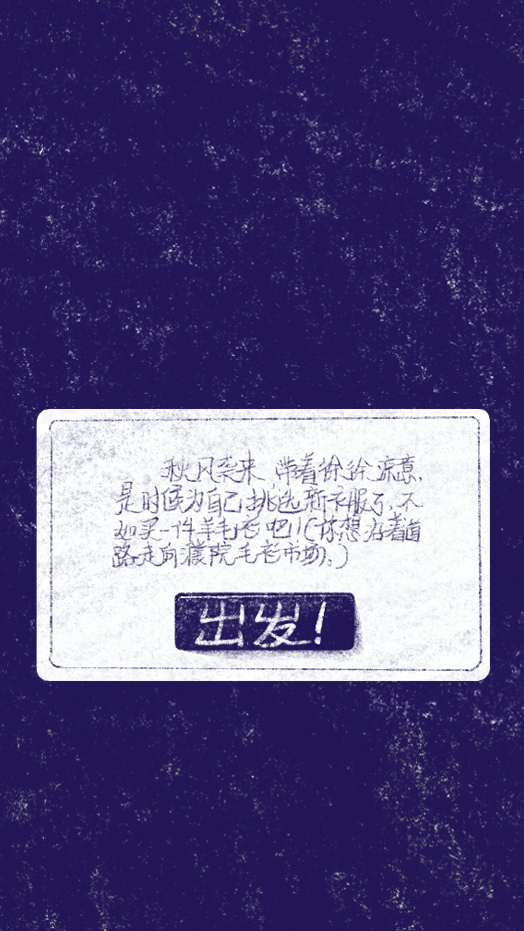 秋风袭来,带着徐徐凉意,
是时候为自己挑选新衣服了,不
如买一件羊毛衫吧!(你想沿着道
路走向濮院毛衫市场。)
出发!